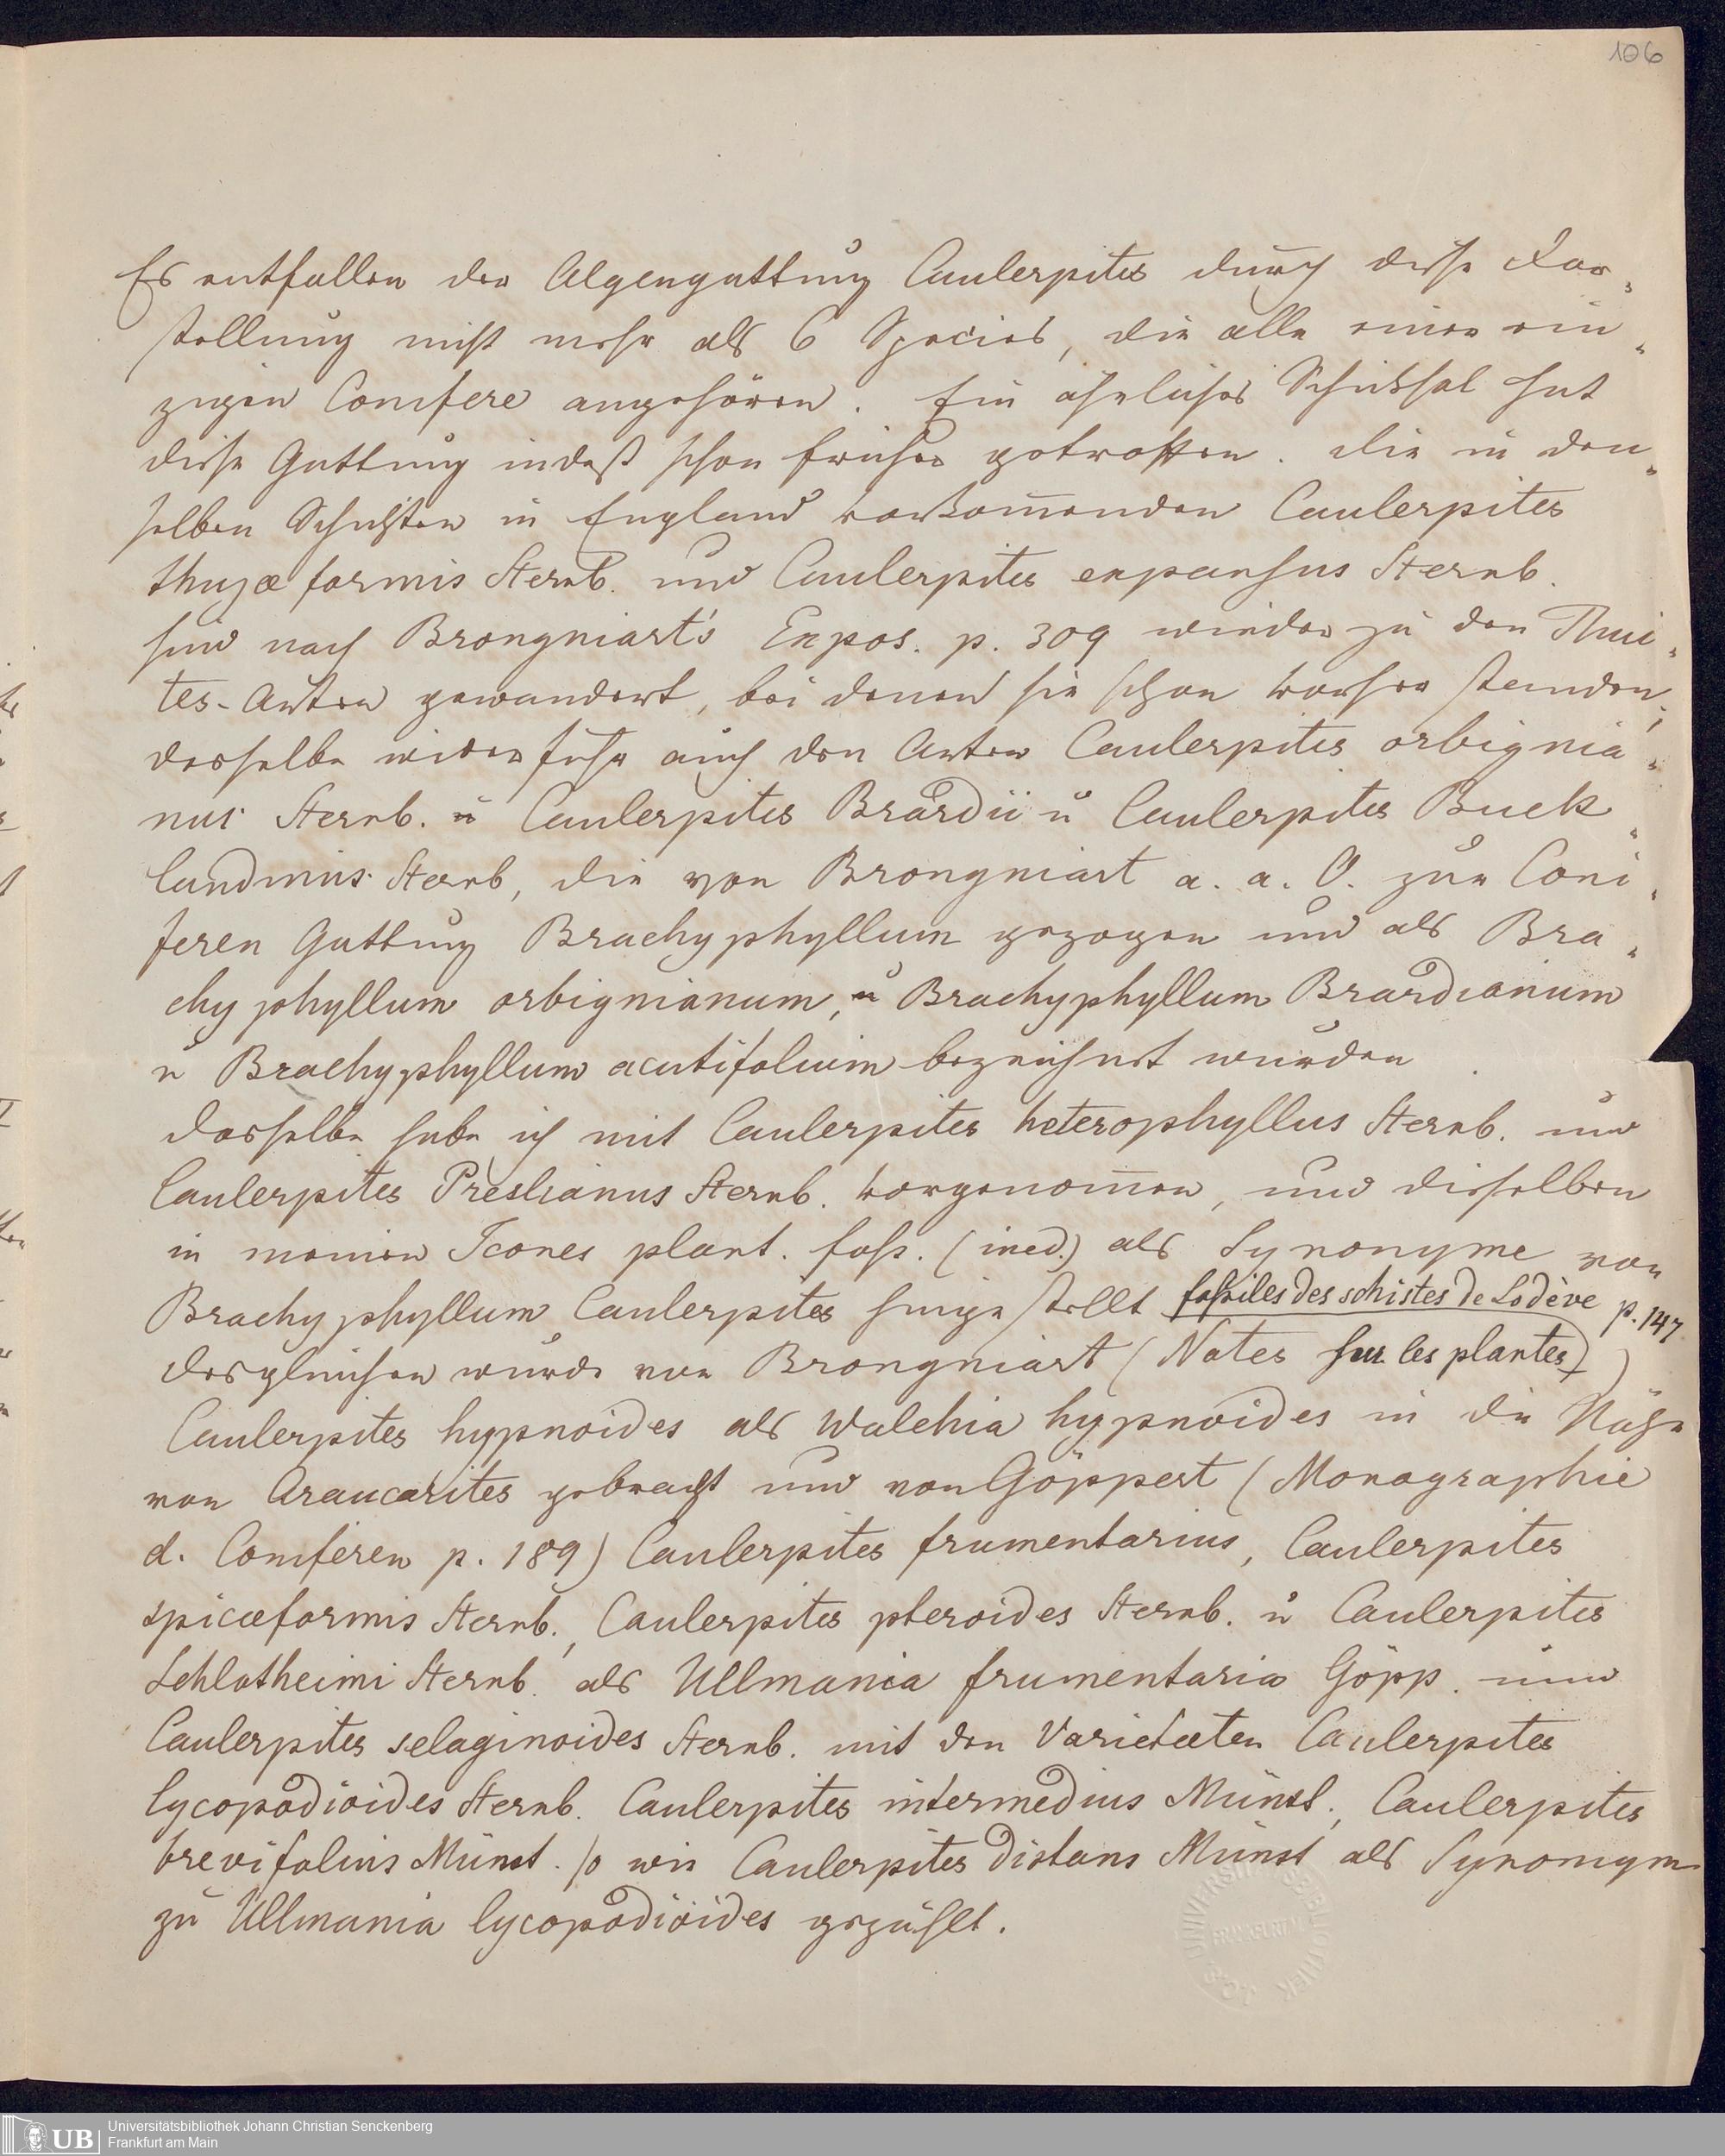 106
Es entfallen der Algengattung Caulerpites durch diese Dar„
stellung nicht mehr als 6 Species, die alle einer ein„
zigen Conifere angehören. Ein ähnliches Schicksal hat
diese Gattung indeß schon früher getroffen. Die in den„
selben Schichten in England vorkom̅enden Caulerpites
thujæformis Sternb. und Caulerpites expansus Sternb.
sind nach Brongniart's Expos. p. 309 wieder zu den Thui„
tes-Arten gewandert, bei denen sie schon vorher standen;
dasselbe widerfuhr auch den Arten Caulerpites orbignia„
nus Sternb. u Caulerpites Brardii u Caulerpites Buck„
landinus Sternb, die von Brongniart a. a. O. zur Coni„
feren Gattung Brachyphyllum gezogen und als Bra„
chyphyllum orbignianum, u Brachyphyllum Brardianum
u Brachyphyllum acutifolium bezeichnet wurden
Dasselbe habe ich mit Caulerpites heterophyllus Sternb. und
Caulerpites Preslianus Sternb. vorgenom̅en, und dieselben
in meinen Icones plant. foss. (ined.) als Synonyme von
Brachyphyllum Caulerpites hingestellt fossiles des schistes de Lodève p. 147
desgleichen wurde von Brongniart (Notes sur les plantes)
Caulerpites hypnoides als Walchia hypnoides in die Nähe
von Araucarites gebracht und von Göppert (Monographie
d. Coniferen p. 189) Caulerpites frumentarius, Caulerpites
spicæformis Sternb., Caulerpites pteroides Sternb. u Caulerpites
Schlotheimi Sternb. als Ullmania frumentaria Göpp. und
Caulerpites selaginoides Sternb. mit den Varietæten Caulerpites
lycopodioides Sternb. Caulerpites intermedius Münst., Caulerpites
brevifolius Münst. so wie Caulerpites distans Münst als Synonym
zu Ullmania lycopodioides gezählt.
UB
Universitätsbibliothek Johann Christian Senckenberg
Frankfurt am Main